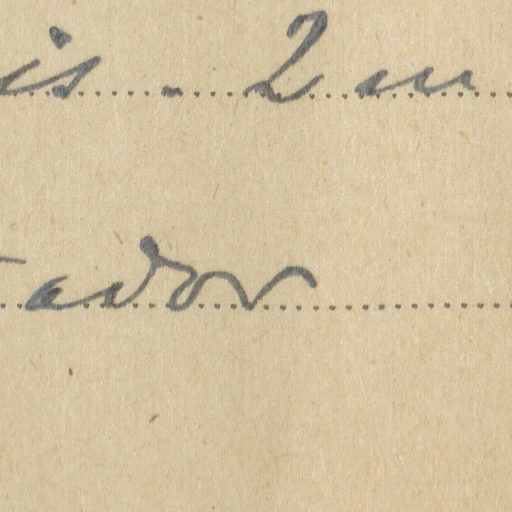 is - 2 m
ador